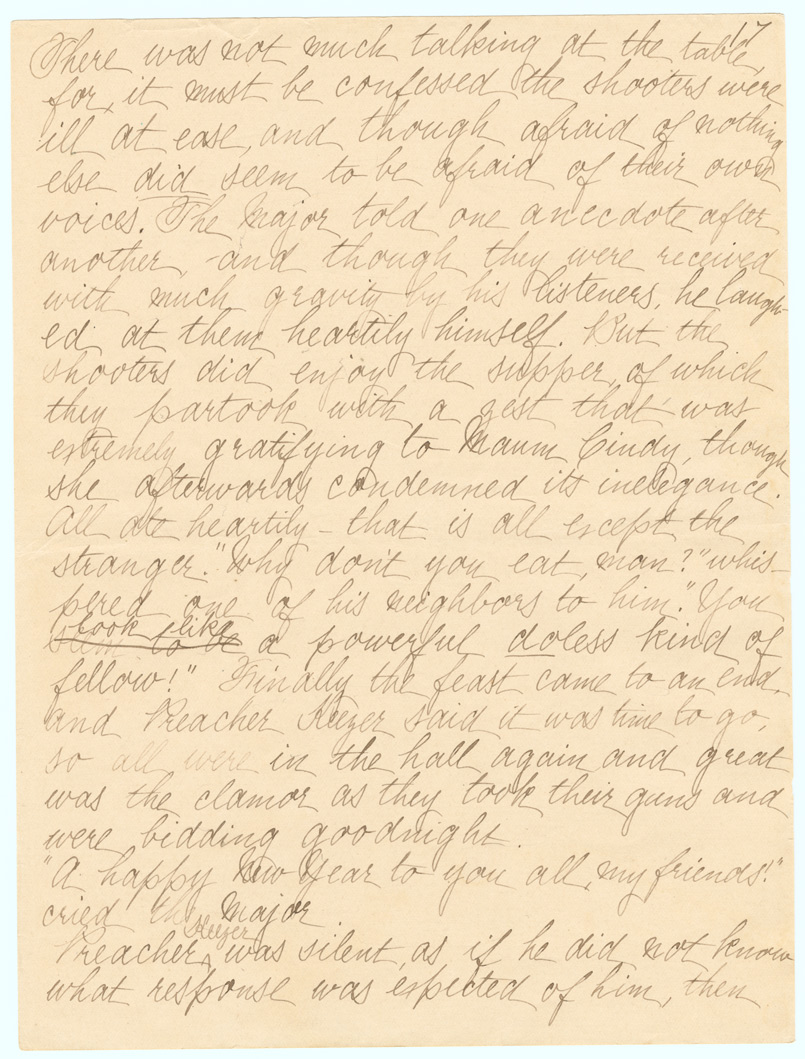 17
There was not much talking at the table,
for, it must be confessed the shooters were
ill at ease, and though afraid of nothing
else did seem to be afraid of their own
voices. The Major told one anecdote after
another, - and though they were received
with much gravity by his listeners, he laugh-
ed at them heartily himself. But the
shooters did enjoy the supper, of which
they partook with a zest that was
extremely gratifying to Maum Cindy, though
she afterwards condemned its inelegance.
All ate heartily - that is all except the
stranger. "Why don't you eat, man?" whis-
pered one of his neighbors to him. "You
look like
seem to be a powerful doless kind of
fellow!" Finally the feast came to an end,
and Preacher Keezer said it was time to go,
so all were in the hall again and great
was the clamor as they took their guns and
were bidding goodnight.
"A happy New Year to you all, my friends!"
cried the Major.
Keezer
Preacher was silent, as if he did not know
what response was expected of him, then